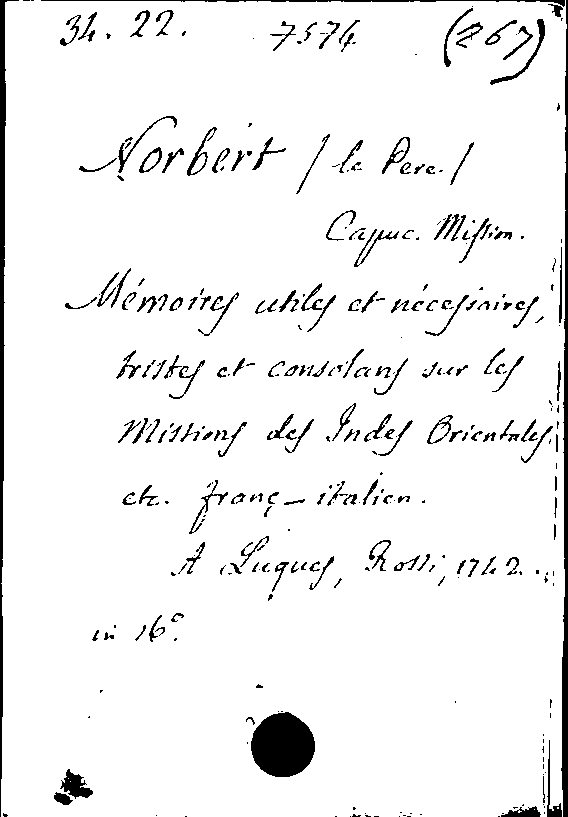 34. 22. 7574 (267)
Norbert / le Pere /
Capuc. Mission.
Mémoires utiles et nécessaires,
tristes et consolans sur les
Missions des Indes Orientales
etc. franç - italien.
A Luques, Rossi, 1742.
in 16°.